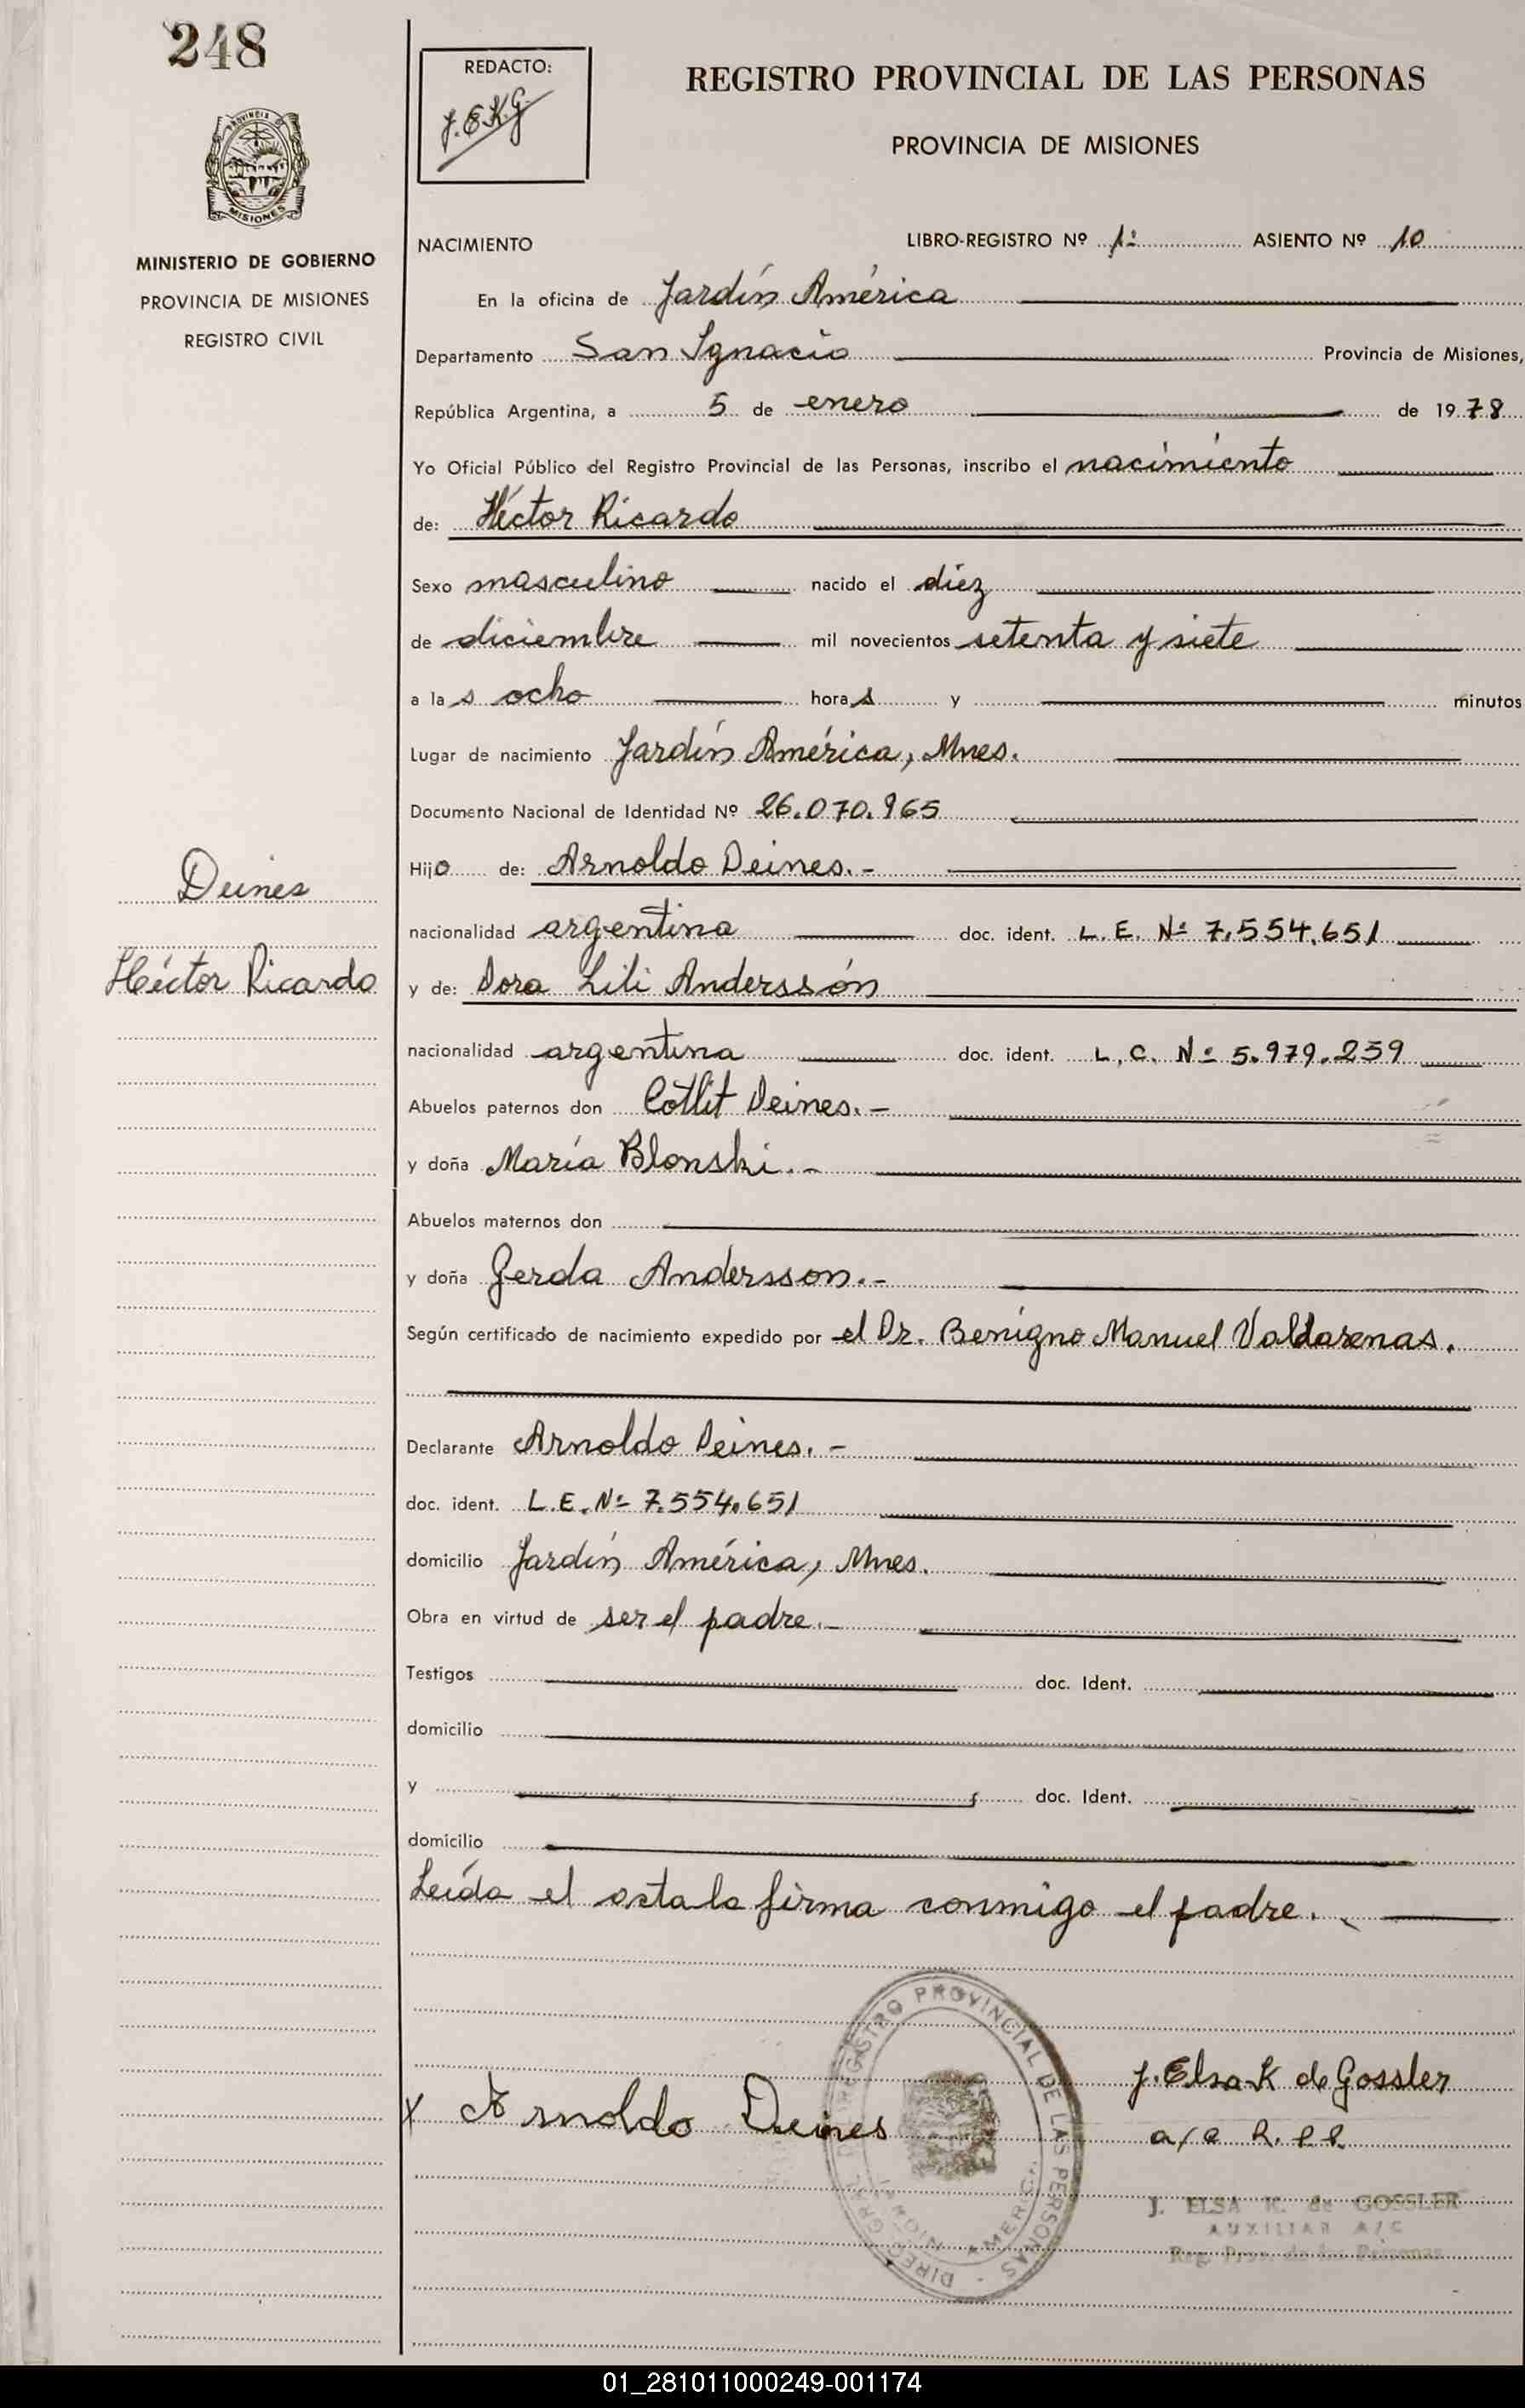 248
REDACTO:
J.E.K.G.
REGISTRO PROVINCIAL DE LAS PERSONAS
PROVINCIA DE MISIONES
PROVINCIA DE
MISIONES
MINISTERIO DE GOBIERNO
PROVINCIA DE MISIONES
REGISTRO CIVIL
NACIMIENTO LIBRO-REGISTRO Nº 1º ASIENTO Nº 10
En la oficina de Jardín América
Departamento San Ignacio Provincia de Misiones,
República Argentina, a 5 de enero de 1978
Yo Oficial Público del Registro Provincial de las Personas, inscribo el nacimiento
de: Héctor Ricardo
Sexo masculino nacido el diez
de diciembre mil novecientos setenta y siete
a las ocho horas y minutos
Lugar de nacimiento Jardín América, Mnes.
Documento Nacional de Identidad Nº 26.070.965
Hijo de: Arnoldo Deines.-
Deines
nacionalidad argentina doc. ident. L.E. Nº 7.554.651
Héctor Ricardo
y de: Dora Lili Anderssón
nacionalidad argentina doc. ident. L.C. Nº 5.979.259
Abuelos paternos don Cotlit Deines.-
y doña María Blonski.-
Abuelos maternos don
y doña Gerda Andersson.-
Según certificado de nacimiento expedido por el Dr. Benigno Manuel Valdarenas.
Declarante Arnoldo Deines.-
doc. ident. L.E. Nº 7.554.651
domicilio Jardín América, Mnes.
Obra en virtud de ser el padre.-
Testigos doc. Ident.
domicilio
y doc. Ident.
domicilio
Leída el acta la firma conmigo el padre.
x Arnoldo Deines
DIREC. GRAL. DEL REGISTRO PROVINCIAL DE LAS PERSONAS
JARDIN AMERICA
J. Elsa K de Gossler
a/c R.P.P.
J. ELSA K. de GOSSLER
AUXILIAR A/C
Reg. Prov. de las Personas
01_281011000249-001174